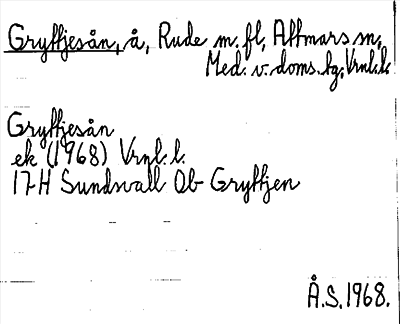 Gryttjesån, å, Rude m. fl., Attmars sn,
Med. v. doms. tg, Vrnl. l.
Gryttjesån
ek (1968) Vrnl. l.
17H Sundsvall Ob Gryttjen
Å.S. 1968.